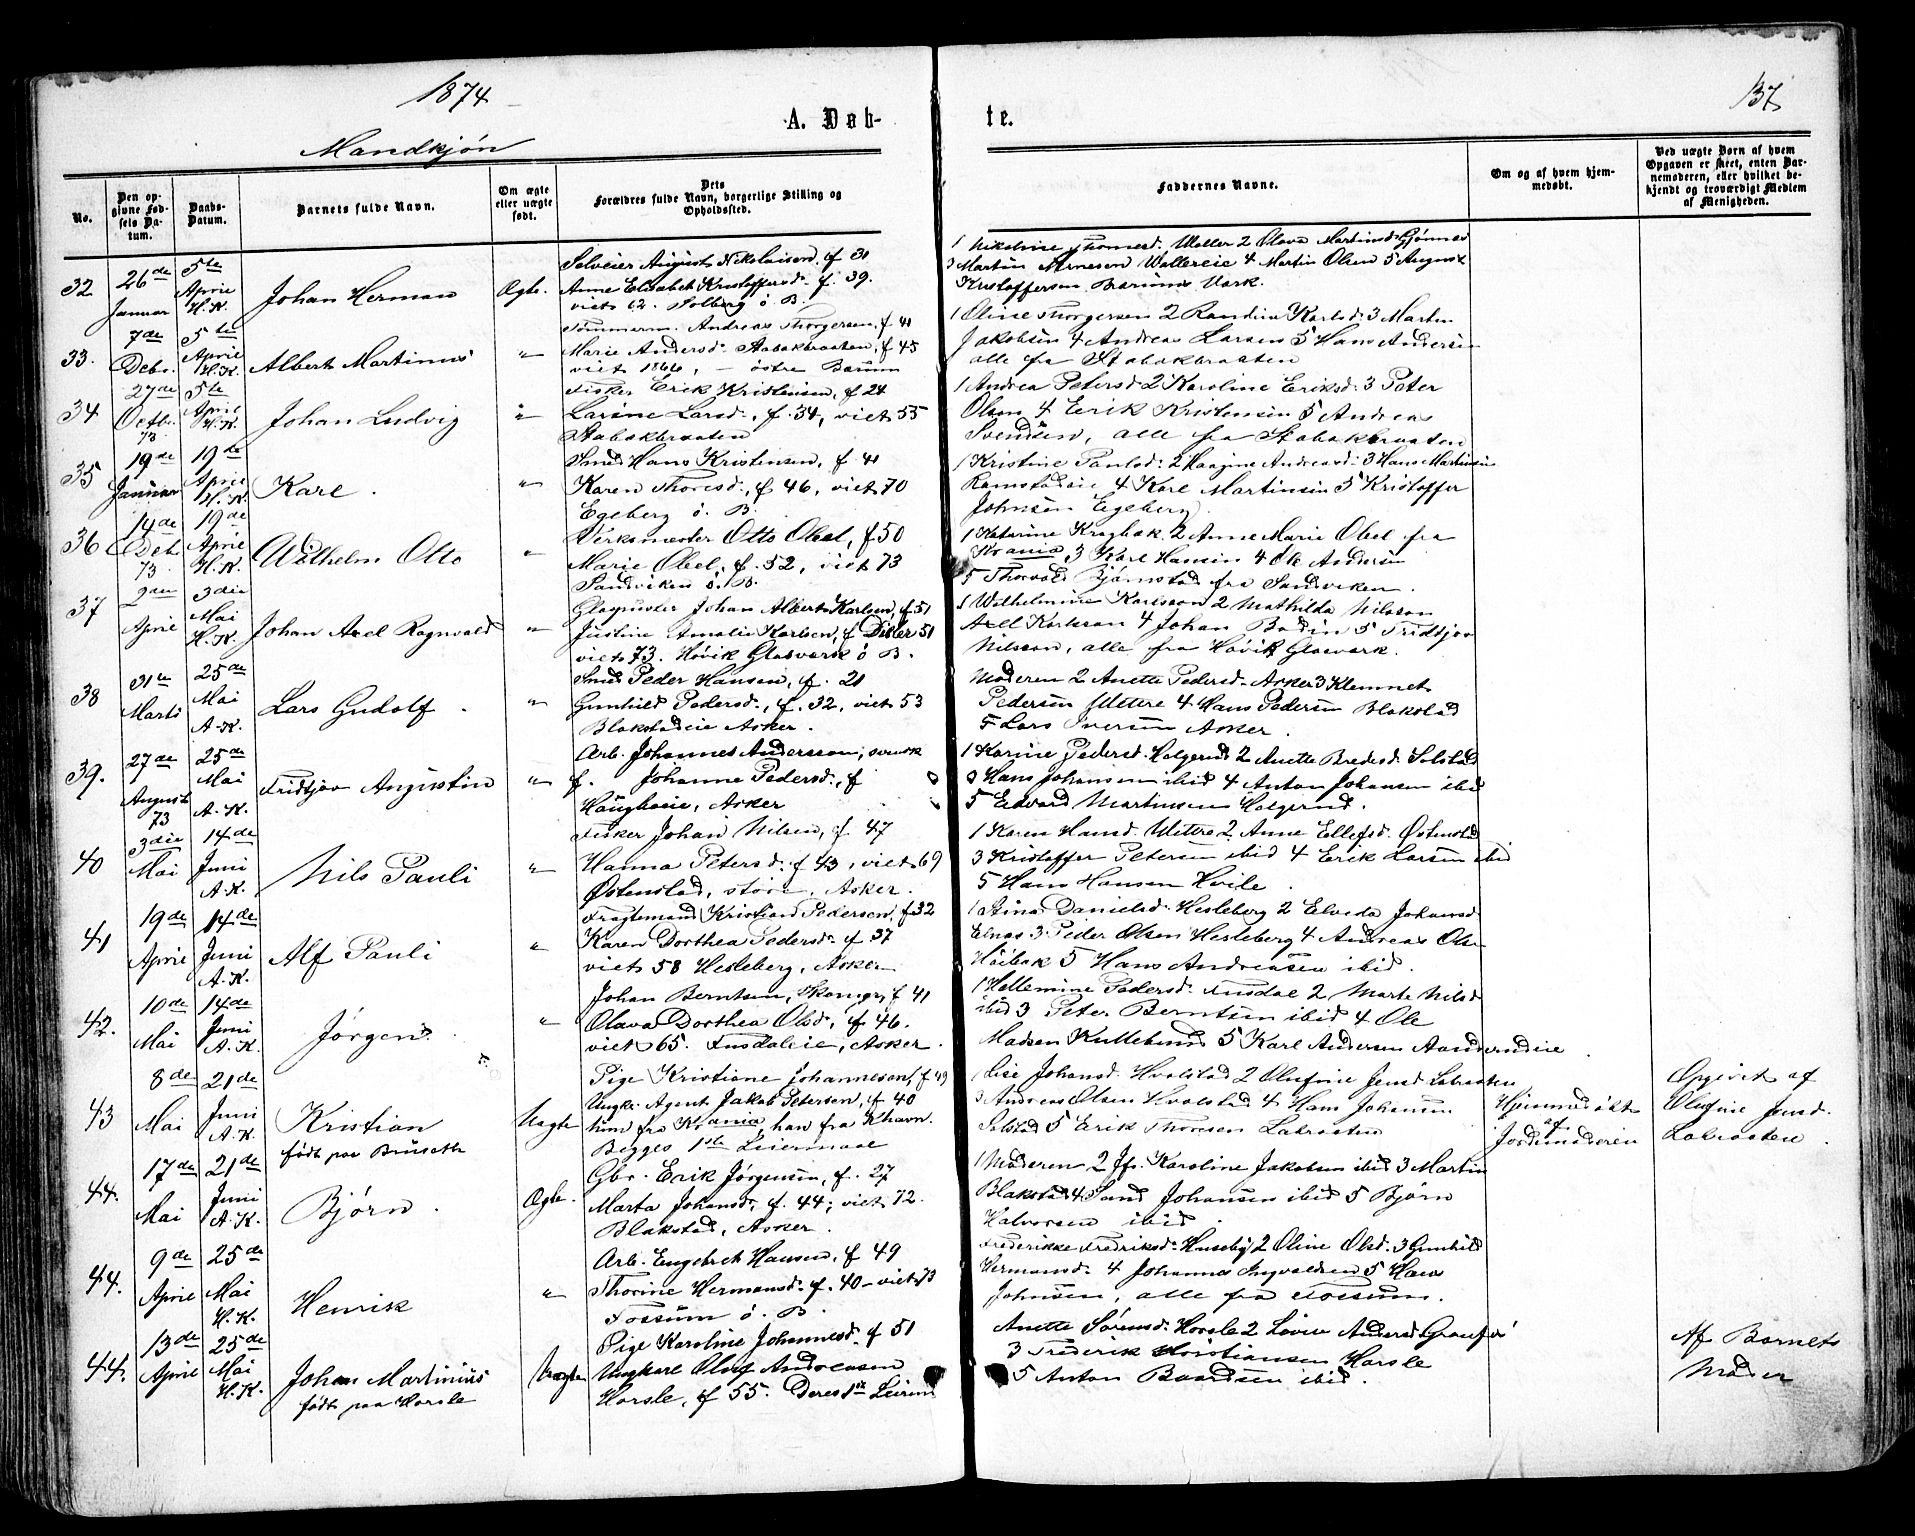 1874
137
A. Døb-
te.
Mandkjøn
No.
Den opgivne Fødsels Datum.
Daabs-Datum.
Barnets fulde Navn.
Om ægte eller uægte født.
Dets Forældres fulde Navn, borgerlige Stilling og Opholdssted.
Faddernes Navne.
Om og af hvem hjemmedøbt.
Ved uægte Børn af hvem Opgaven er skeet, enten Barnemoderen, eller hvilket bekjendt og troværdigt Medlem af Menigheden.
32 26de Januar 5te April H.K. Johan Herman Ægte.
Selveier August Nikolaisen, f 31
Anne Elisabeth Kristoffersd. f. 39.
viet 62. Solberg ö. B.
1 Nikoline Thomesd. Waller 2 Olava Martinsd.
3 Martin Arnesen Wallereie 4 Martin Olsen 5 August
Kristoffersen Bærums Værk.
33. 7de Debr. 5te April H.K. Albert Martinius "
Tømmerm. Andreas Thorgersen, f 41
Marie Andersd. Stabækbraaten, f 45
viet 1866, - östre Bærum
1 Oline Thorgersen 2 Randine Karlsd. 3 Martin
Jakobsen 4 Andreas Larsen 5 Hans Andersen
alle fra Stabækbraaten
34 27de Octbr. 73 5te April H.K. Johan Ludvig "
Fisker Erik Kristensen, f 24
Larine Larsd., f. 34, viet 55
Stabækbraaten
1 Andrea Petersd. 2 Karoline Eriksd. 3 Peter
Olsen 4 Erik Kristensen 5 Andreas
Svendsen, alle fra Stabækbraaten
35 19de Januar 19de April H.K. Karl. "
Smed Hans Kristensen, f 41
Karen Thoresd., f 46, viet 70
Egeberg ö. B.
1 Kristine Paulsd. 2 Haagine Andreasd. 3 Hans Martinsen
Ramstadeie 4 Karl Martinsen 5 Kristoffer
Johnsen Egeberg
36 14de Deb. 73. 19de April H.K. Wilhelm Otto "
Verksmester Otto Obel, f 50
Marie Obel, f. 52, viet 73
Sandviken ö. B.
1 Katarine Kragbæk 2 Anne Marie Obel fra
Krania, 3 Karl Hansen 4 Ole Andersen
5 Thorvald Bjørnstad fra Sandviken.
37 2den April 3die Mai H.K. Johan Axel Ragnvald "
Glaspuster Johan Albert Karlsen, f 51
Justine Amalie Karlsen, f Disler 51
viet 73. Høvik Glasværk ö B.
1 Wilhelmine Karlsson 2 Mathilda Nilsson
Axel Karlsson 4 Johan Bodin 5 Fridtjov
Nilsson, alle fra Høvik Glasværk.
38 31te Marts 25de Mai A.K. Lars Gudolf. "
Smed Peder Hansen, f. 21
Gunhild Pedersd., f. 32, viet 53
Blakstadeie Asker.
Moderen 2 Anette Pedersd. Asker 3 Klemmet
Pedersen Wettre 4 Hans Pedersen Blakstad
5 Lars Iversen Asker.
39. 27de August 73 25de Mai A.K. Fridtjov Augustin "
Arb. Johannes Andersson, svensk
f. Johanne Pedersd., f
Haugboeie, Asker
1 Karine Pedersd. Holgerud 2 Anette Bredesd. Solstad
3 Hans Johansen ibid 4 Anton Johansen ibid
5 Edvard Martinsen Holgerud.
40 3die Mai 14de Juni A.K. Nils Pauli "
Fisker Johan Nilsen, f 47
Hanna Petersd. f 43, viet 69
Østenstad, store, Asker.
1 Karen Hansd. Wettre 2 Anne Ellefsd. Østenstad
3 Kristoffer Petersen ibid 4 Erik Larsen ibid
5 Hans Hansen Hvile.
41 19de April 14de Juni A.K. Alf Pauli "
Fragtemand Kristian Pedersen, f 32
Karen Dorthea Pedersd. f 37
viet 58 Hesleberg, Asker
1 Stina Danielsd. Hesleberg 2 Elveda Johansd.
Elnæs 3 Peder Olsen Hesleberg 4 Andreas Ols.
Høibak 5 Hans Andreasen ibid.
42. 10de Mai 14de Juni A.K. Jørgen. "
Johan Berntsen, Skomgr, f 41
Olava Dorthea Olsd., f 46.
viet 65. Fusdaleie, Asker.
1 Hellemine Pedersd. Fusdal 2 Marte Nilsd
ibid 3 Peter Berntsen ibid 4 Ole
Madsen Kullebund 5 Karl Andersen Aanderudeie.
43 8de Mai 21de Juni A.K. Kristian født paa Bruset Uægte
Pige Kristiane Johannesen, f 49
Ungk. Agent Jakob Petersen, f 40
hun fra Krania, han fra Khavn.
Begges 1ste Leiermaal
Lise Johansd. Hvalstad 2 Olufine Jensd. Labraaten
3 Andreas Olsen Hvalstad 4 Hans Johansen
Solstad 5 Erik Thoresen Labraaten
Hjemmedøbt af Jordemoderen
Opgivet af Olufine Jensd. Labraaten.
44. 17de Mai 21de Juni A.K. Bjørn. Ægte.
Gbr. Erik Jørgensen, f. 27
Marta Johansd., f. 44; viet 72.
Blakstad, Asker.
1 Moderen 2 Jfr. Karoline Jakobsen ibid 3 Martin
Blakstad 4 Sand Johansen ibid 5 Bjørn
Halvorsen ibid.
44. 9de April 25de Mai H.K. Henrik "
Arb. Engebret Hansen, f 49
Thorine Hermansd. f. 40 - viet 73
Fossum ö. B.
Frederikke Fredriksd. Huseby 2 Oline Olsd. 3 Gunhild
Hermansd. 4 Johannes Ingvaldsen 5 Hans
Johnsen, alle fra Fossum.
44. 13de April 25de Mai H.K. Johan Martinius født paa Horsle Uægte
Pige Karoline Johannesd. f 51
Ungkarl Oluf Andreasen
Horsle, f 55. Deres 1ste Leierm
Anette Sørensd. Horsle 2 Lovise Andersd.
3 Frederik Kristiansen Horsle
5 Anton Baardsen ibid.
Af Barnets Moder